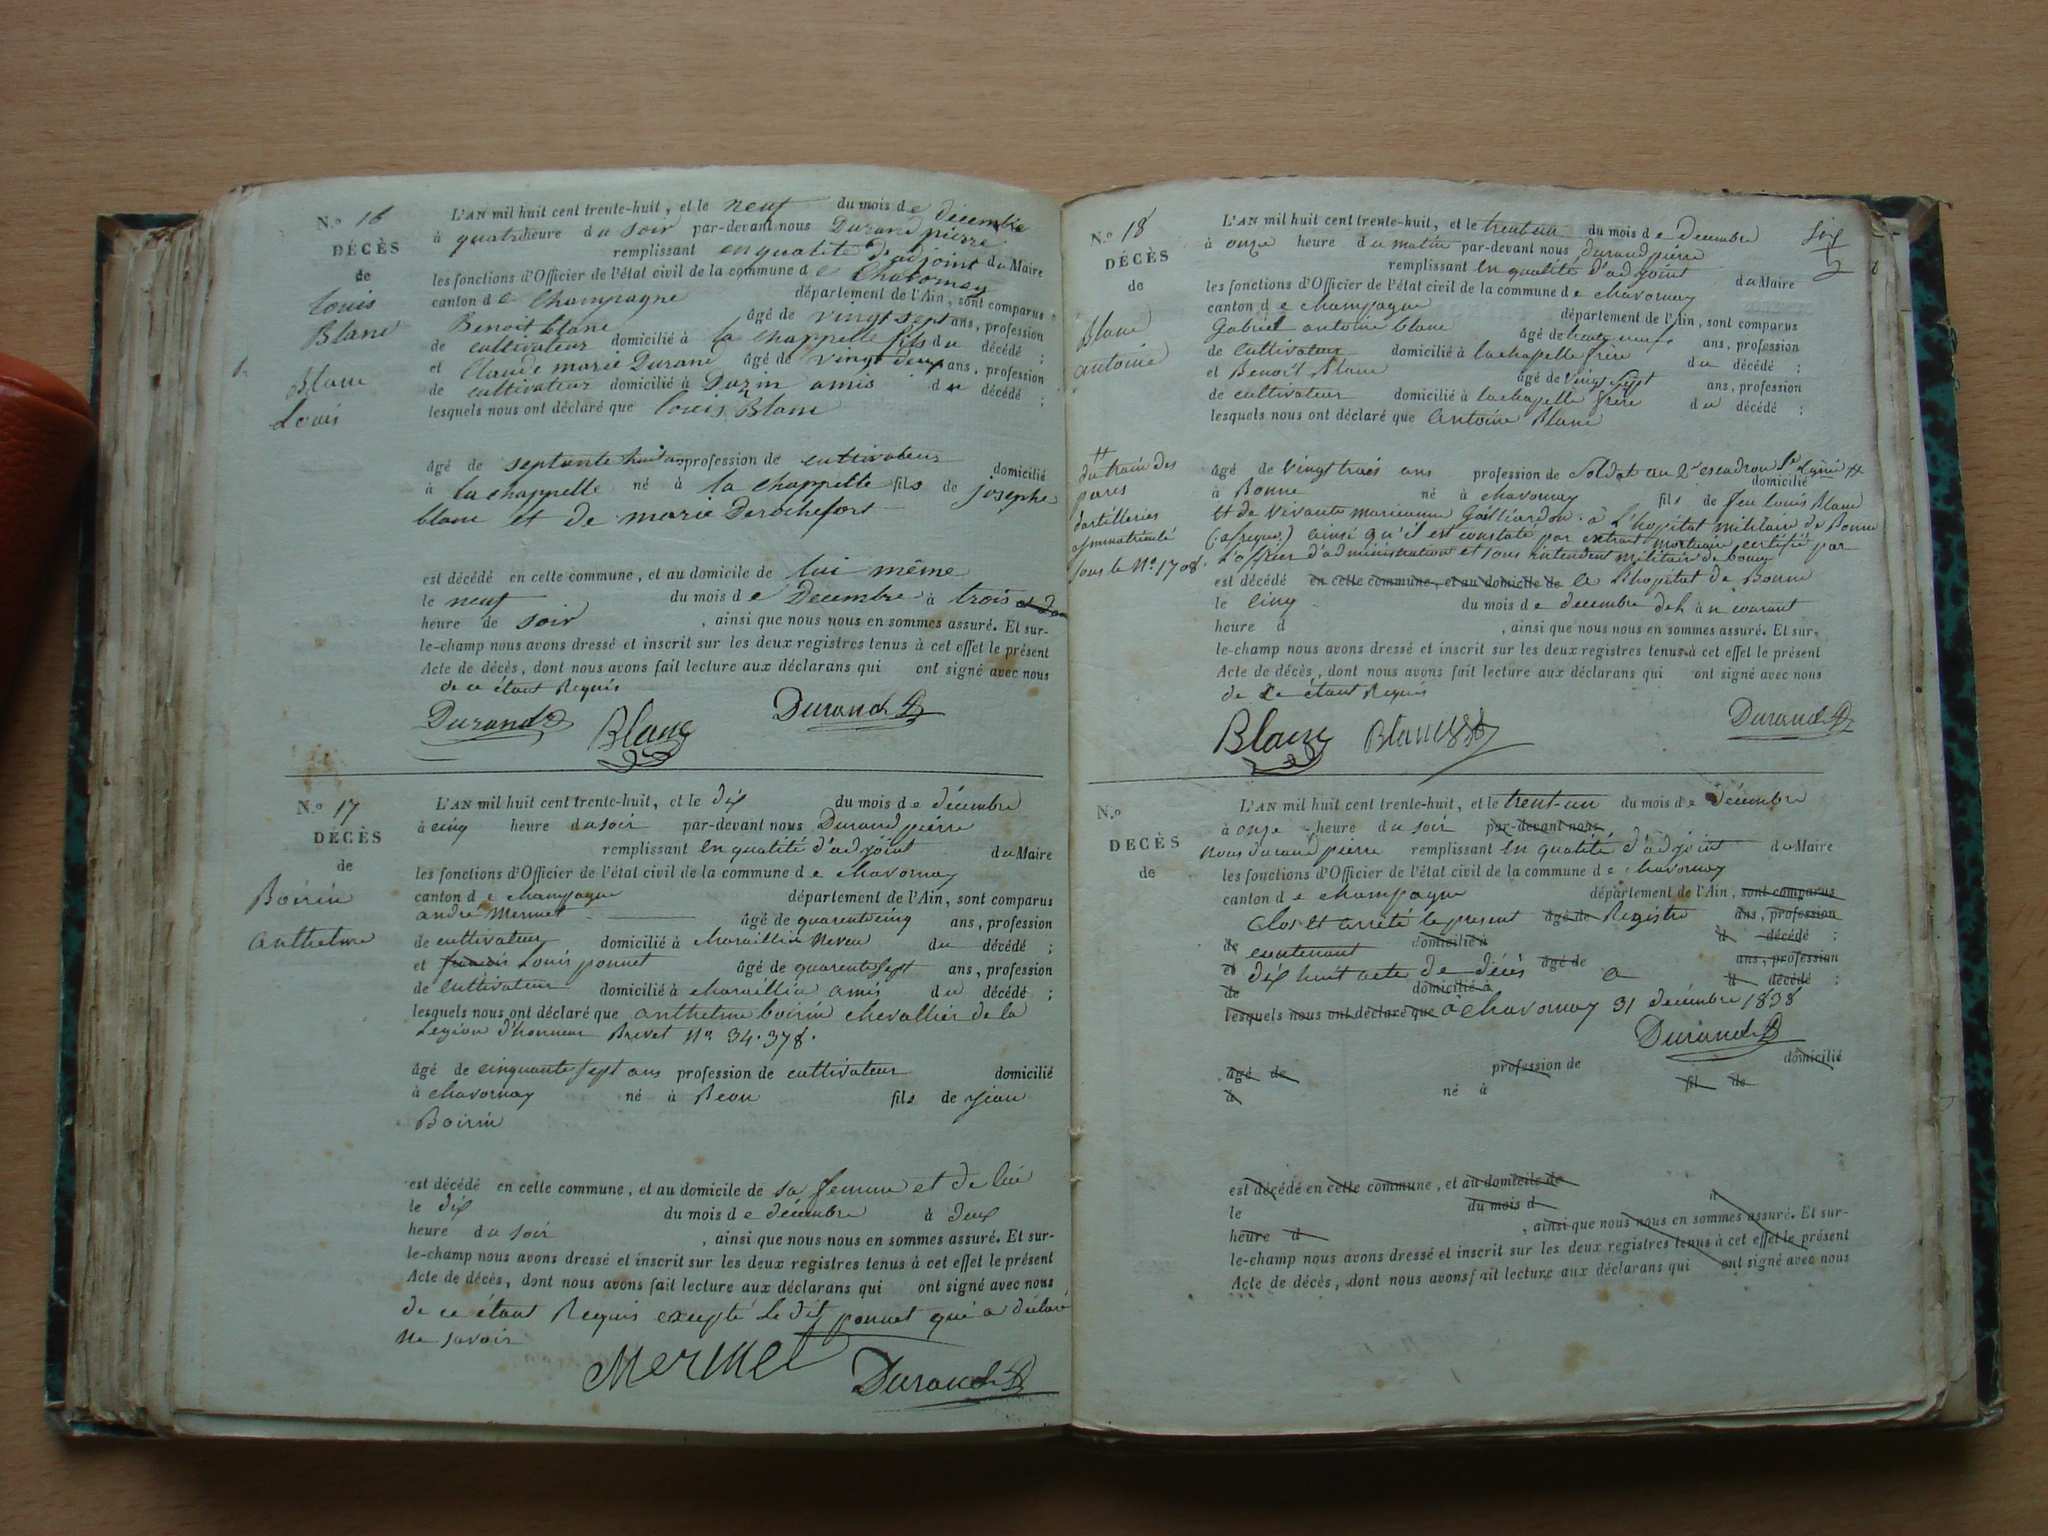 N.o 16
DÉCÈS
de
Louis
Blanc
Blanc
Louis
L'AN mil huit cent trente-huit, et le neuf du mois de décembre
à quatre heure du soir par-devant nous Durand pierre
remplissant en qualité d'adjoint du Maire
les fonctions d'Officier de l'état civil de la commune de Chavornay
canton de Champagne département de l'Ain, sont comparus
Benoit blanc âgé de vingt sept ans, profession
de cultivateur domicilié à la Chappelle fils du décédé ;
et Claude marie Durand âgé de vingt deux ans, profession
de cultivateur domicilié à Dazin amis du décédé ;
lesquels nous ont déclaré que Louis Blanc
âgé de septante huit ans profession de cultivateur domicilié
à la chappelle né à la chappelle fils de josephe
blanc et de marie Derochefort
est décédé en cette commune, et au domicile de lui même
le neuf du mois de Decembre à trois
heure de soir, ainsi que nous nous en sommes assuré. Et sur-
le-champ nous avons dressé et inscrit sur les deux registres tenus à cet effet le présent
Acte de décès, dont nous avons fait lecture aux déclarans qui ont signé avec nous
de ce étant Requis
Durand Blanc Durand
N.o 17
DÉCÈS
de
Boirin
anthelme
L'AN mil huit cent trente-huit, et le dix du mois de décembre
à cinq heure du soir par-devant nous Durand pierre
remplissant en qualité d'adjoint du Maire
les fonctions d'Officier de l'état civil de la commune de chavornay
canton de champagne département de l'Ain, sont comparus
andré Mermet âgé de quarente cinq ans, profession
de cultivateur domicilié à charaillin Neveu du décédé ;
et francois Louis ponnet âgé de quarente sept ans, profession
de cultivateur domicilié à charaillin amis du décédé ;
lesquels nous ont déclaré que anthelme boirin chevallier de la
Legion d'honneur Brevet No 34.378.
âgé de cinquante sept ans profession de cultivateur domicilié
à chavornay né à Beon fils de jean
Boirin
est décédé en cette commune, et au domicile de sa femme et de lui
le dix du mois de décembre à deux
heure du soir, ainsi que nous nous en sommes assuré. Et sur-
le-champ nous avons dressé et inscrit sur les deux registres tenus à cet effet le présent
Acte de décès, dont nous avons fait lecture aux déclarans qui ont signé avec nous
de ce étant Requis excepté Le dit ponnet qui a déclaré
ne savoir
Mermet Durand
N.o 18
DÉCÈS
de
Blanc
antoine
L'AN mil huit cent trente-huit, et le trent-un du mois de decembre
à onze heure du matin par-devant nous durand pierre
remplissant en qualité d'adjoint du Maire
les fonctions d'Officier de l'état civil de la commune de chavornay
canton de champagne département de l'Ain, sont comparus
Gabriel antoine blanc âgé de trente neuf ans, profession
de cultivateur domicilié à lachapelle frère du décédé ;
et Benoit blanc âgé de vingt sept ans, profession
de cultivateur domicilié à lachapelle frère du décédé ;
lesquels nous ont déclaré que antoine Blanc
du train des
parcs
d'artilleries
immatriculé
sous le No 1708.
âgé de vingt trois ans profession de Soldat au 2e escadron domicilié
à Bonne né à chavornay fils de feu Louis Blanc
et de vivante marianne Gailliardon. à L'hopital militaire de Bonne
(afrique) ainsi qu'il est constaté par extrait mortuaire certifié par
L'officier d'administration et sous intendent militaire de bonne
est décédé en cette commune, et au domicile de a L'hopital de Bonne
le cinq du mois de decembre de L'an courant
heure d , ainsi que nous nous en sommes assuré. Et sur-
le-champ nous avons dressé et inscrit sur les deux registres tenus à cet effet le présent
Acte de décès, dont nous avons fait lecture aux déclarans qui ont signé avec nous
de ce étant Requis
Blanc Blanc Durand
N.o
DÉCÈS
de
L'AN mil huit cent trente-huit, et le trent-un du mois de décembre
à onze heure du soir par-devant nous
Nous durand pierre remplissant en qualité d'adjoint du Maire
les fonctions d'Officier de l'état civil de la commune de chavornay
canton de champagne département de l'Ain, sont comparus
Clos et arreté le present âgé de Registre ans, profession
de contenant domicilié à d décédé ;
et dix huit acte de décès âgé de ans, profession
de domicilié à d décédé ;
lesquels nous ont déclaré que à chavornay 31 décembre 1838
Durand
âgé de profession de domicilié
à né à fil de
est décédé en cette commune, et au domicile de
le du mois d à
heure d , ainsi que nous nous en sommes assuré. Et sur-
le-champ nous avons dressé et inscrit sur les deux registres tenus à cet effet le présent
Acte de décès, dont nous avons fait lecture aux déclarans qui ont signé avec nous